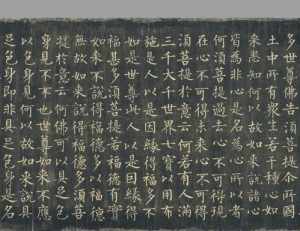 多世尊佛告須菩提尒所國
土中所有衆生若干種心如
來悉知何以故如來說諸心
皆為非心是名為心所以者
何須菩提過去心不可得現
在心不可得未來心不可得
須菩提於意云何若有人滿
三千大千世界七寶以用布
施是人以是因緣得福多不
如是世尊此人以是因緣得
福甚多須菩提若福德有實
如來不說得福德多以福德
無故如來說得福德多須菩
提於意云何佛可以具足色
身見不不也世尊如來不應
以色身見何以故如來說具
足色身即非具足色身是名